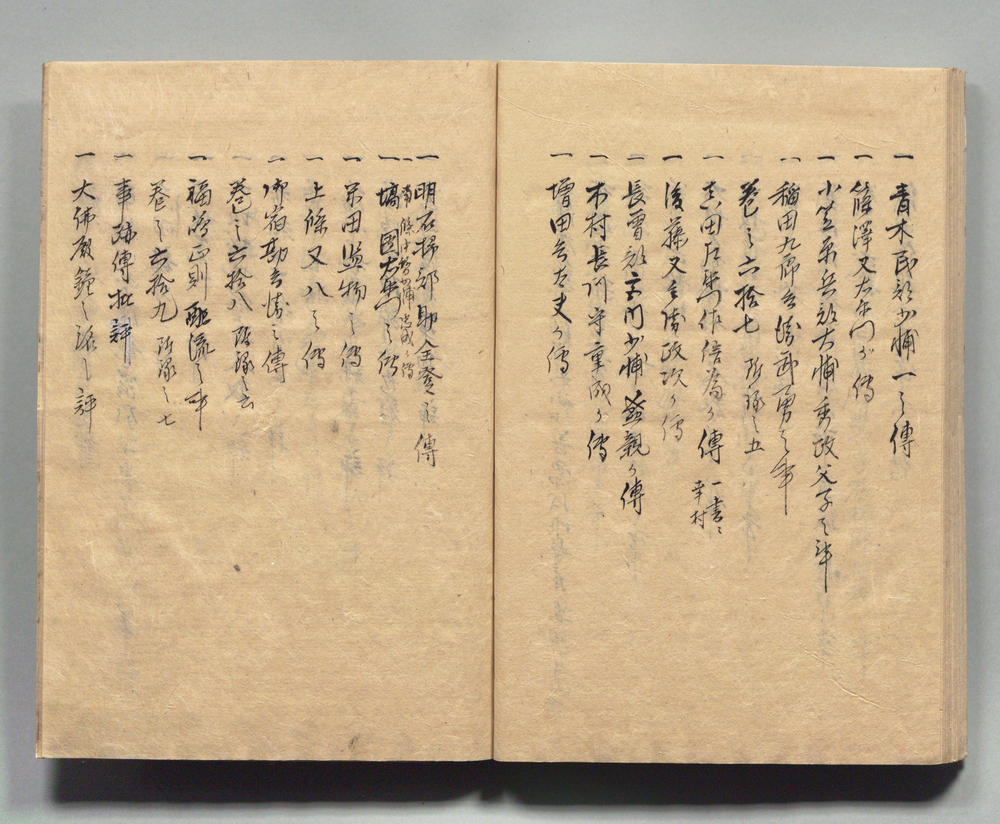 一 青木民部少輔一之傳
一 篠澤又左衛門が傳
一 小笠原兵部大輔秀政父子之事
一 稲田九郎兵衛武勇之事
巻之六拾七 附録之五
一 真田左衛門佐信為が傳 一書ニ幸村
一 後藤又兵衛政次が傳
一 長曽我部宮内少輔盛親が傳
一 木村長門守重成が傳
一 増田兵太夫が傳
一 明石掃部助全登之傳
一 南條中務少輔忠成之傳
一 塙團右衛門之傳
一 岡田監物之傳
一 上條又八之傳
一 御宿勘兵衛之傳
巻之六拾八 附録之六
一 福嶋正則配流之事
巻之六拾九 附録之七
一 事跡傳批評
一 大佛殿鐘之銘之評